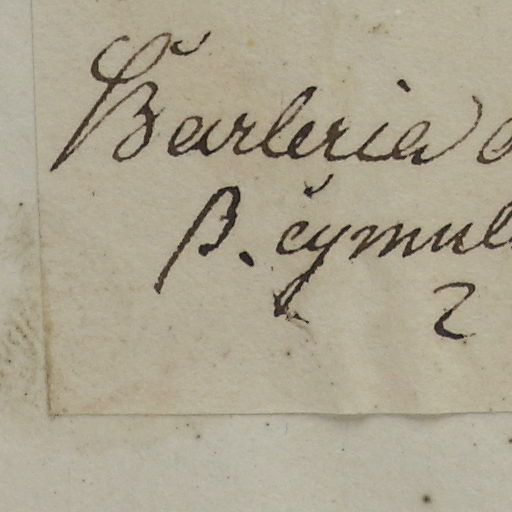 Barleria
β. cymul
2